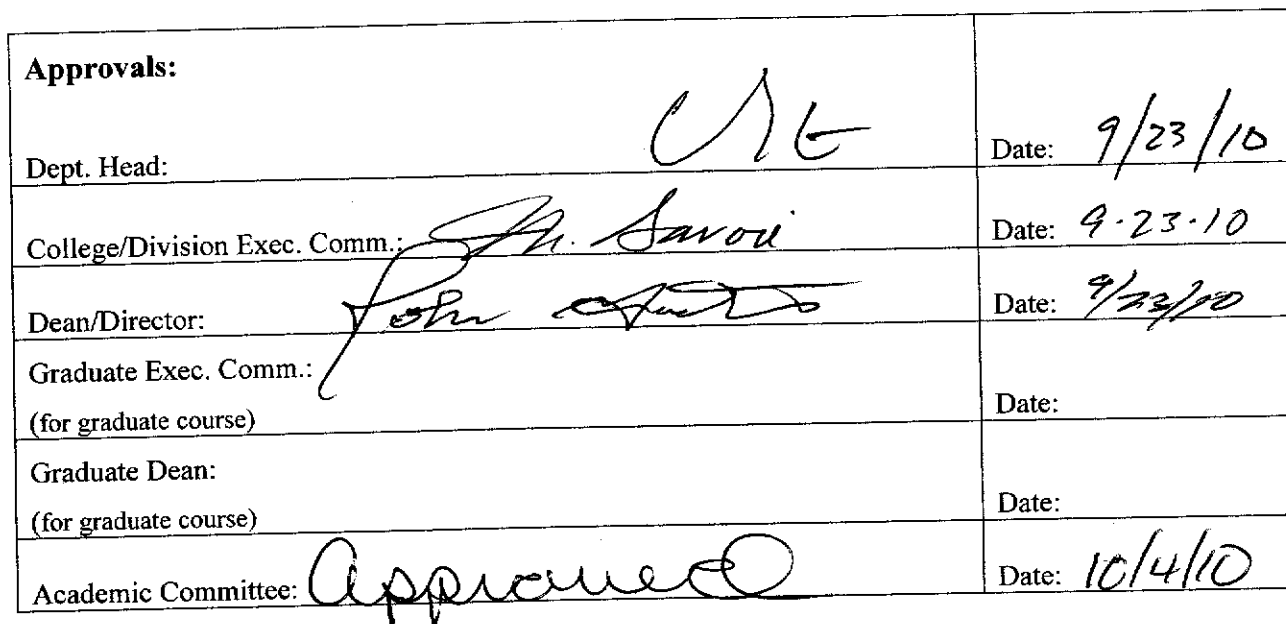 Approvals:
Dept. Head: Date: 9/23/10
College/Division Exec. Comm.: M. Savoie Date: 9-23-10
Dean/Director: John Date: 9/23/10
Graduate Exec. Comm.:
(for graduate course) Date:
Graduate Dean:
(for graduate course) Date:
Academic Committee: Approved Date: 10/4/10